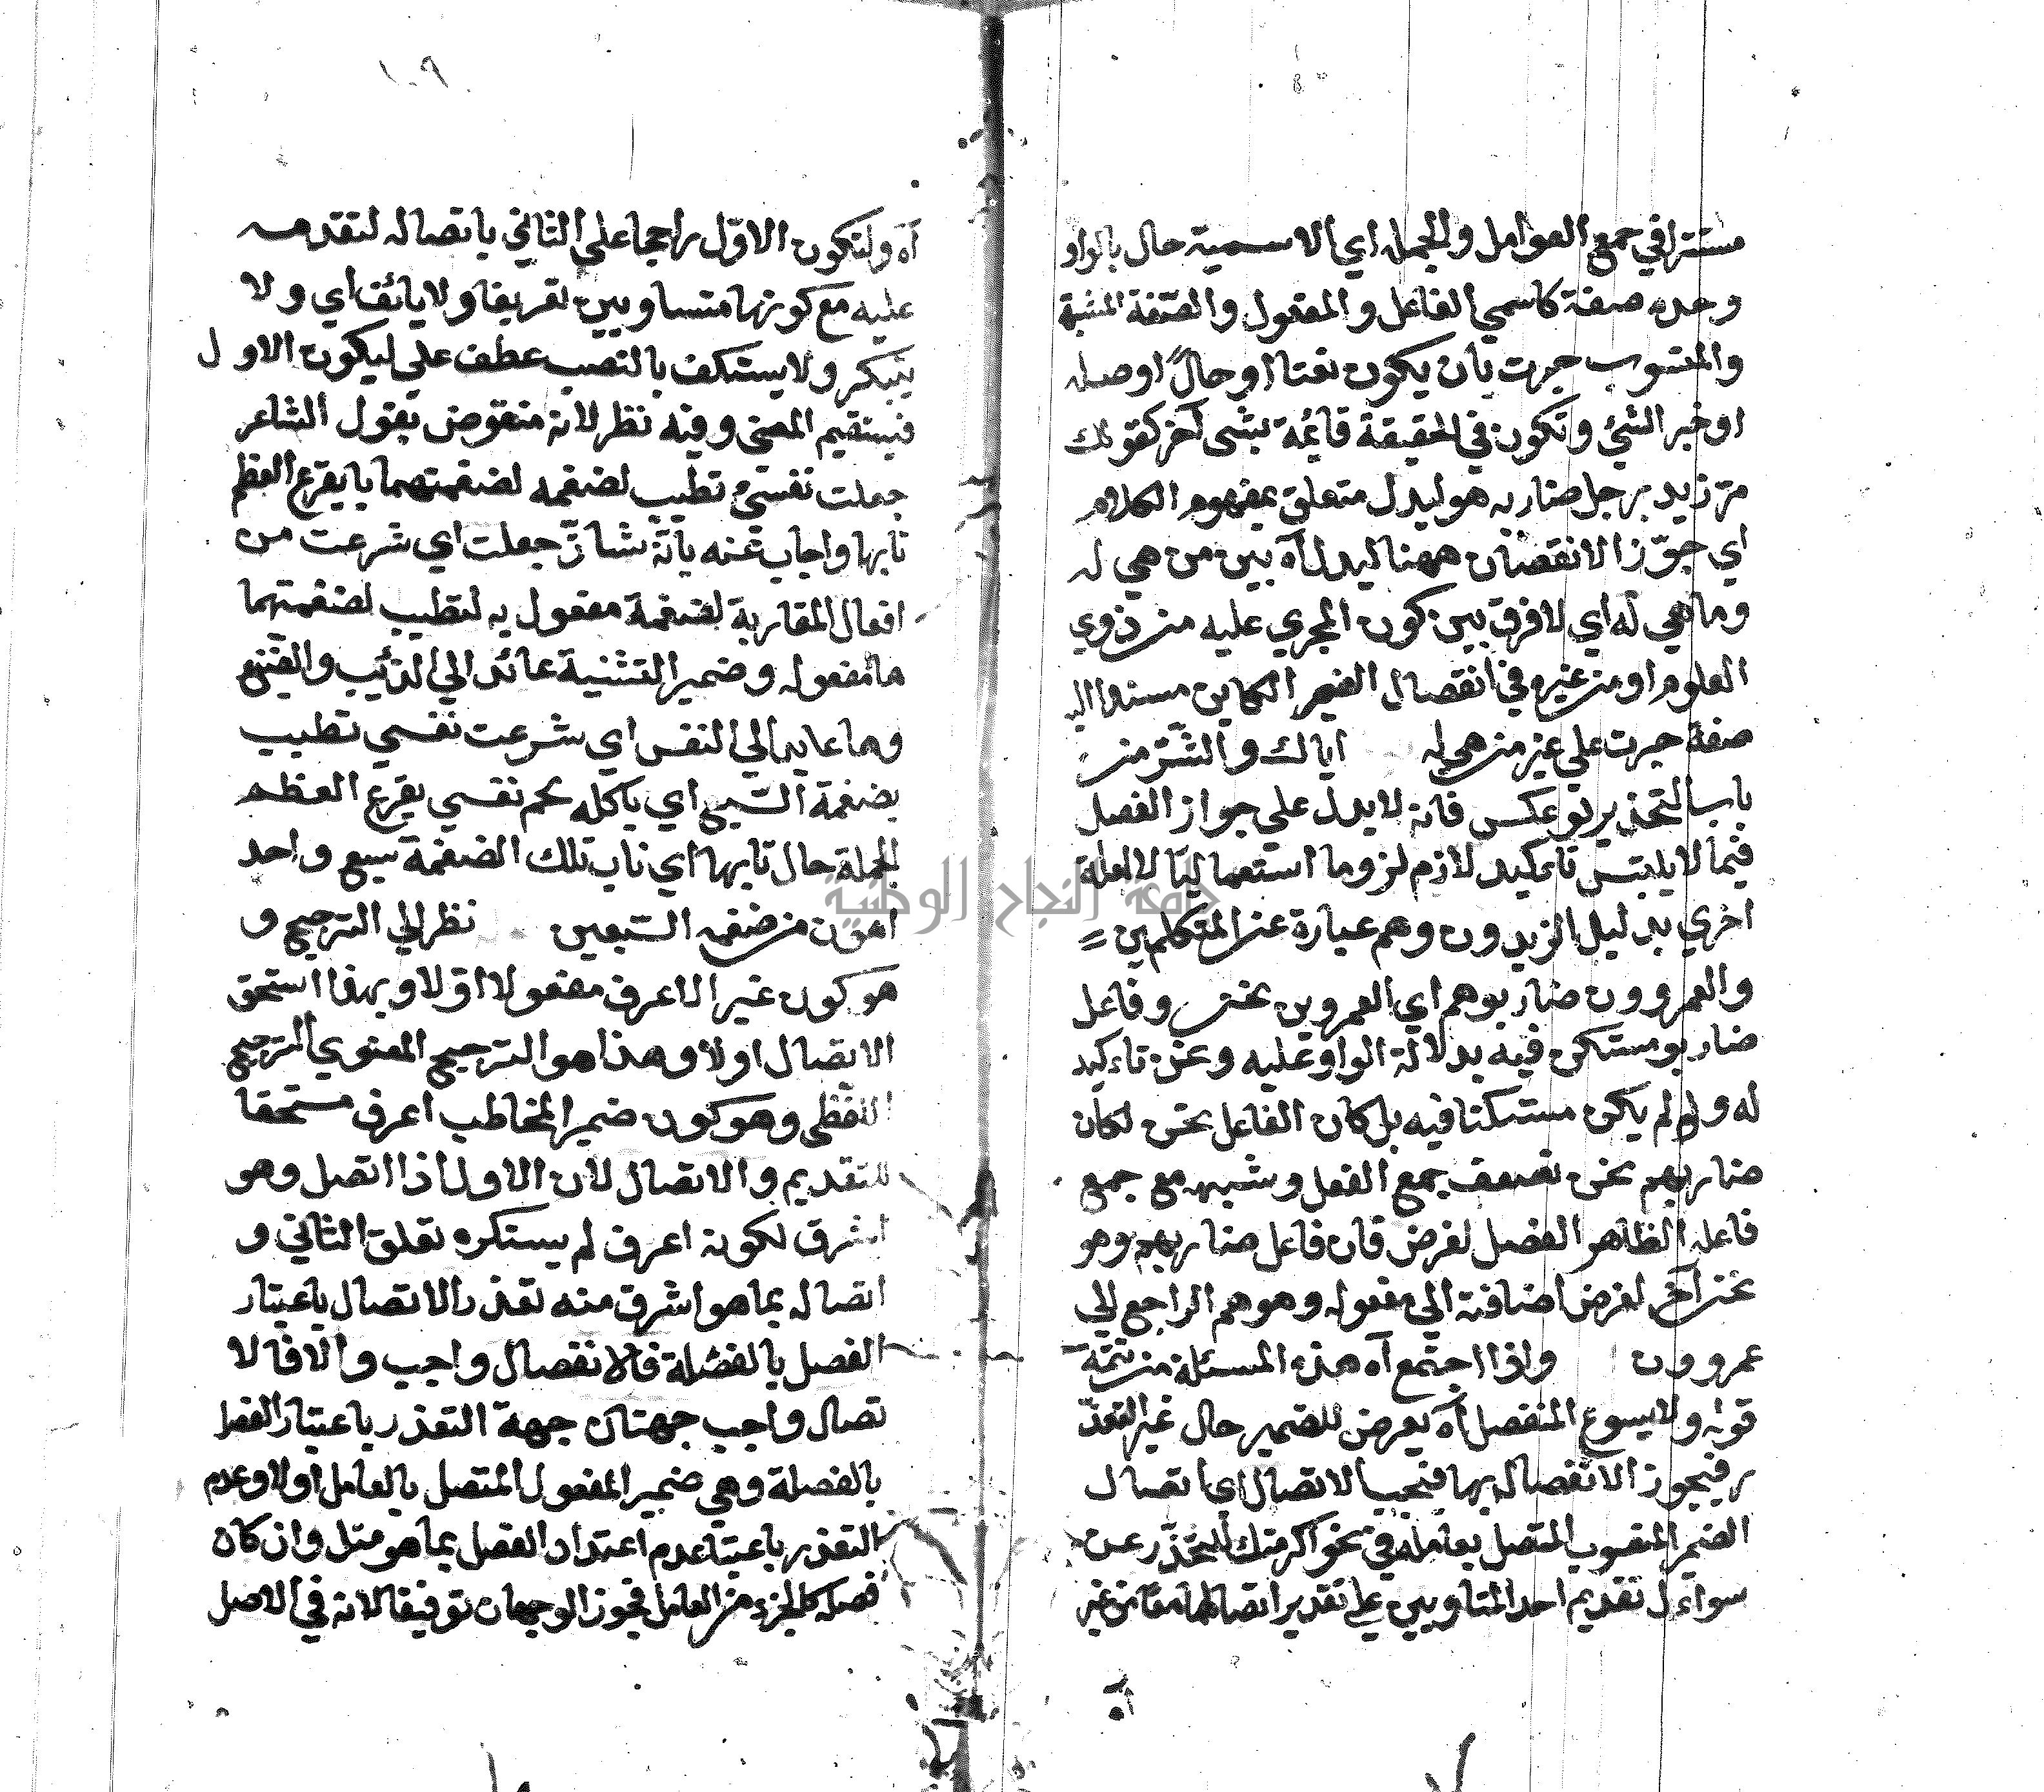 مستترا في جمع العوامل والجملة اي الاسمية حال بالواو
وحده صفة كاسمي الفاعل والمفعول والصّفة المشبهة
والمنسوب جرت بان يكون نعتا او حالاً او صلة
او خبر الشيئ وتكون في الحقيقة قائمة بشيئ آخر كقولك
مرّ زيد برجل ضاربه هو ليدل متعلق بمفهوم الكلام
اي جوّز الانفصال ههنا ليدل آه بين من هي له
وما هي له اي لا فرق بين كون المجري عليه من ذوي
العلوم او من غيره في انفصال الضمير الكاين مسندا اليه
صفة جرت علي غير من هي له اياك والشّرّ من
باب التحذير لو عكس فانه لا يدل علي جواز الفصل
فيما لا يلتبس تاءكيد لازم لزوما استعماليّا لا لعلة
اخري بدليل الزيدون وهم عبارة عن المتكلمين
والعمروون ضاربوهم اي العمروين نحن وفاعل
ضاربو مستكن فيه بدلالة الواو عليه ونحن تاءكيد
له ولو لم يكن مستكنا فيه بل كان الفاعل نحن لكان
ضاربهم نحن لضعف جمع الفعل وشبهه مع جمع
فاعله الظاهر الفصل لغرض فان فاعل ضاربهم وهو
نحن آخر لغرض اضافته الي مفعوله وهو هم الراجع الي
عمروون واذا اجتمع آه هذه المسئلة من تتمّة
قوله ولا يسوغ المنفصل آه يعرض للضمير حال غير التعذّ
ر فيجوز الانفصال بها فيجب الاتصال اي اتصال
الضمير المنصوب المتصل بعامله في نحو اكرمتك للتحذّر عن
سواء ل تقديم احد المتساويين علي تقدير اتصالهما معا من غير
١٠٩
آه وليكون الاوّل راجحا علي الثاني باتصاله لتقدمه
عليه مع كونهما متساويين تعريفا ولا يانف اي ولا
يتكبر ولا يستنكف بالنصب عطف علي ليكون الاول
فيستقيم المعني وفيه نظر لانه منقوض بقول الشاعر
جعلت نفسي تطيب لضغمة لضغمهما يا يقرع العظم
نابها واجاب عنه بانّه شاذّ جعلت اي شرعت من
افعال المقاربة لضغمة مفعول به لتطيب لضغمهما
ها مفعوله وضمير التثنية عائد الي الذئب والضبع
وها عايد الي النفس اي شرعت نفسي تطيب
بضغمة السّبع اي ياكله لحم نفسي يقرع العظم
الجملة حال نابها اي ناب تلك الضغمة سبع واحد
اهون من ضغمه السّبعين نظر الي الترجيح و
هو كون غير الاعرف مفعولا اوّلا وبهذا استحق
الاتصال اولا وهذا هو الترجيح المعنوي الترجيح
اللفظي وهو كون ضمير المخاطب اعرف مستحقا
للتقديم والاتصال لان الاول اذا اتصل وهو
اشرف لكونه اعرف لم يستكره تعلق الثاني و
اتصاله بما هو اشرف منه تعذر الاتصال باعتبار
الفصل بالفضلة فالانفصال واجب والا فالا
تصال واجب جهتان جهة التعذر باعتبار الفصل
بالفضلة وهي ضمير المفعول المتصل بالعامل اولا وعدم
التعذر باعتبا عدم اعتداد الفصل بما هو متصل وان كان
فصله كالجزء من العامل فيجوز الوجهان توفيقا لانه في الاصل
جامعة النجاح الوطنية